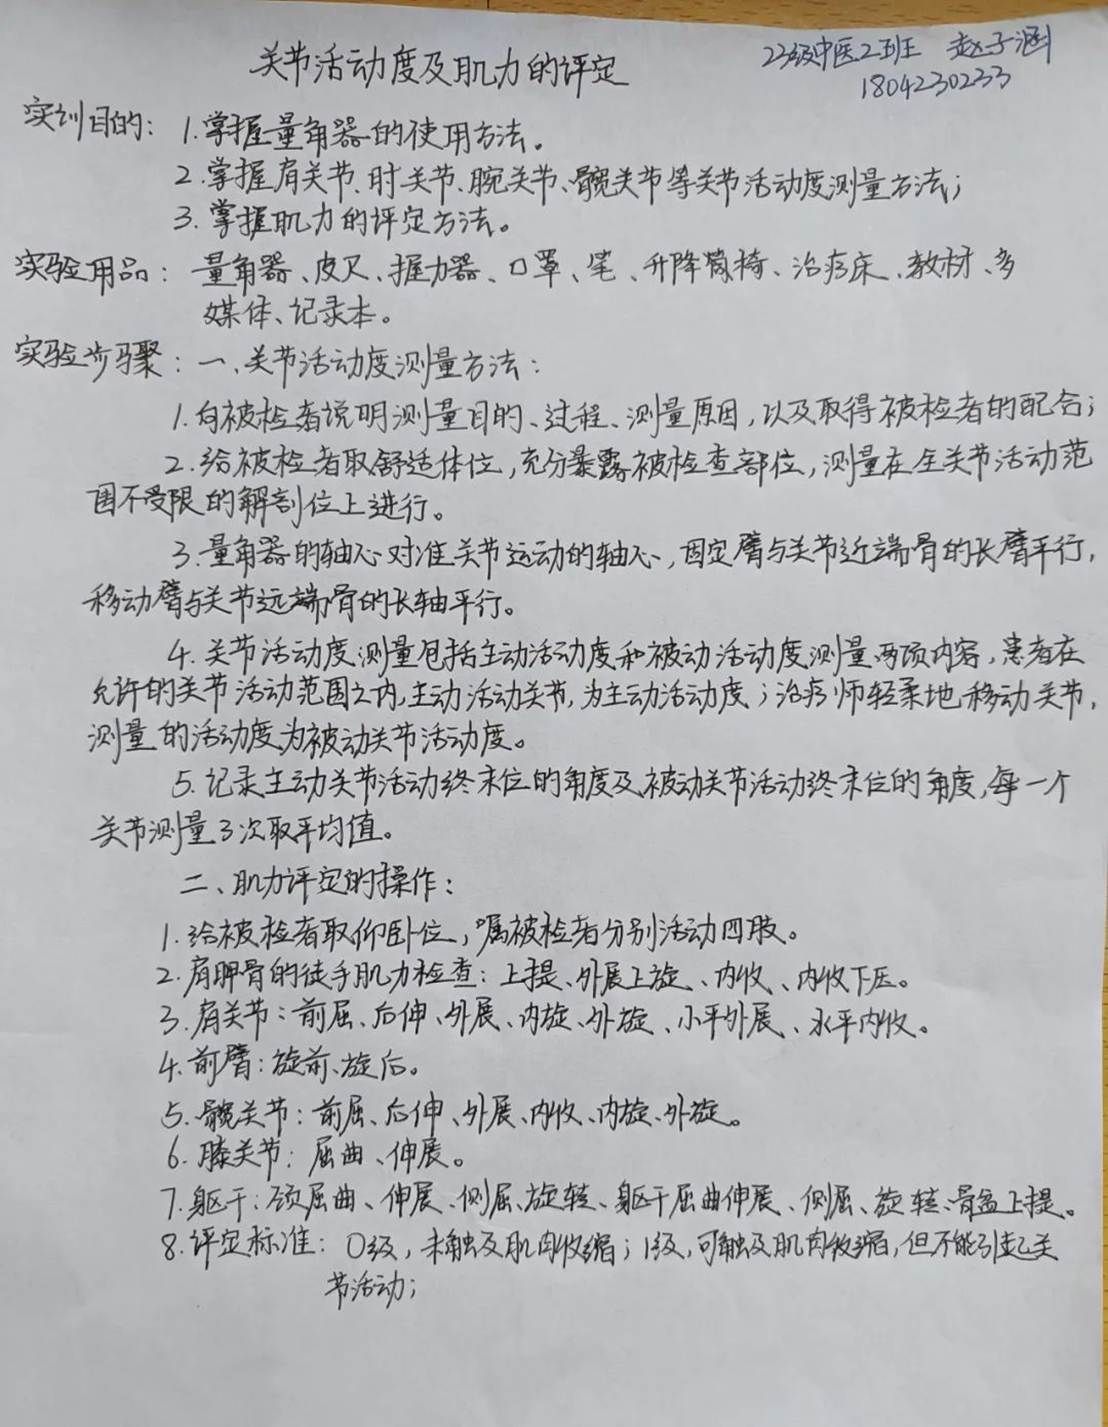 关节活动度及肌力的评定
23级中医2班 赵子涵
1804230233
实训目的：1.掌握量角器的使用方法。
2.掌握肩关节、肘关节、腕关节、髋关节等关节活动度测量方法；
3.掌握肌力的评定方法。
实验用品：量角器、皮尺、握力器、口罩、笔、升降背椅、治疗床、教材、多
媒体、记录本。
实验步骤：一、关节活动度测量方法：
1.向被检者说明测量目的、过程、测量原因，以及取得被检者的配合；
2.给被检者取舒适体位，充分暴露被检查部位，测量在全关节活动范
围不受限的解剖位上进行。
3.量角器的轴心对准关节运动的轴心，固定臂与关节近端骨的长臂平行，
移动臂与关节远端骨的长轴平行。
4.关节活动度测量包括主动活动度和被动活动度测量两项内容，患者在
允许的关节活动范围之内，主动活动关节，为主动活动度；治疗师轻柔地移动关节，
测量的活动度为被动关节活动度。
5.记录主动关节活动终末位的角度及被动关节活动终末位的角度，每一个
关节测量3次取平均值。
二、肌力评定的操作：
1.给被检者取仰卧位，嘱被检者分别活动四肢。
2.肩胛骨的徒手肌力检查：上提、外展上旋、内收、内收下压。
3.肩关节：前屈、后伸、外展、内旋、外旋、水平外展、水平内收。
4.前臂：旋前、旋后。
5.髋关节：前屈、后伸、外展、内收、内旋、外旋。
6.膝关节：屈曲、伸展。
7.躯干：颈屈曲、伸展、侧屈、旋转、躯干屈曲伸展、侧屈、旋转、骨盆上提。
8.评定标准：0级，未触及肌肉收缩；1级，可触及肌肉收缩，但不能引起关
节活动；